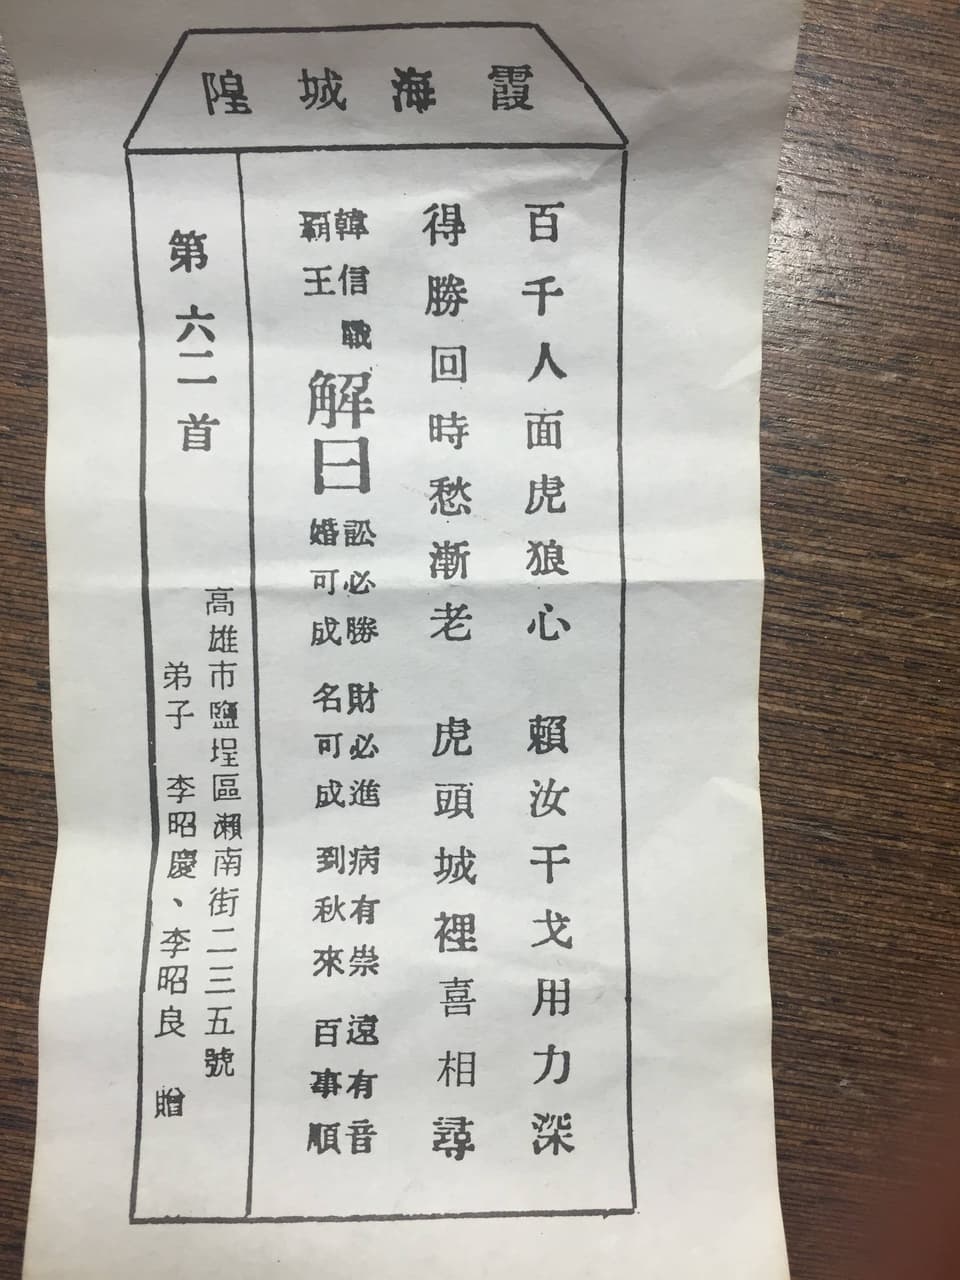 霞海城隍
百千人面虎狼心　賴汝干戈用力深
得勝回時愁漸老　虎頭城裡喜相尋
韓信戰
霸王
解曰
訟必勝　財必進　病有祟　遠有音
婚可成　名可成　到秋來　百事順
第六二首
高雄市鹽埕區瀨南街二三五號
弟子　李昭慶、李昭良　贈